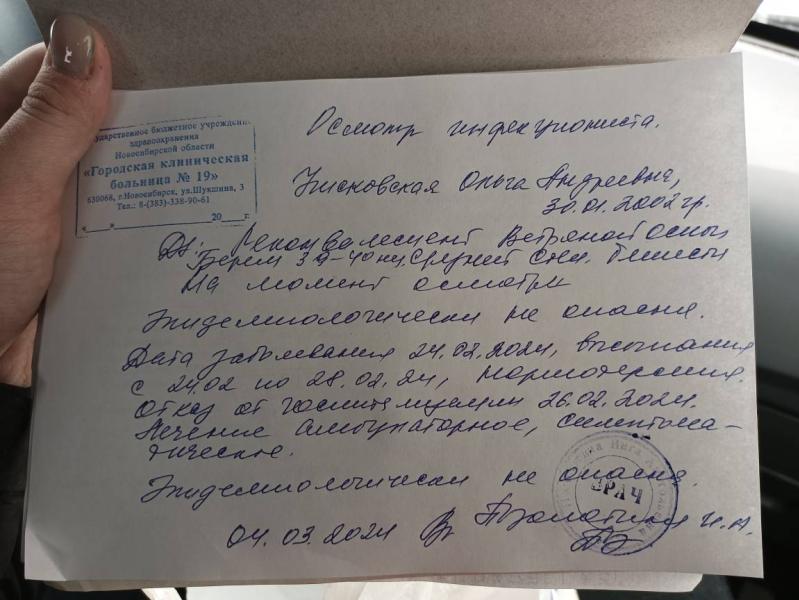 Государственное бюджетное учреждение
здравоохранения
Новосибирской области
«Городская клиническая
больница № 19»
630068, г.Новосибирск, ул.Шукшина, 3
Тел.: 8-(383)-338-90-61
«___»________20___г.
Осмотр инфекциониста.
Ольга Андреевна,
30.01.2002 гр.
Ds: Реконвалесцент Ветряной оспы
Берем 39-40 нд. средней степ. тяжести
На момент осмотра
Эпидемиологически не опасна.
Дата заболевания 24.02.2024, высыпания
с 24.02 по 28.02.24,
Отказ от госпитализации 26.02.2024.
Лечение амбулаторное, симптома-
тическое.
Эпидемиологически не опасна.
ВРАЧ
04.03.2024 Вр